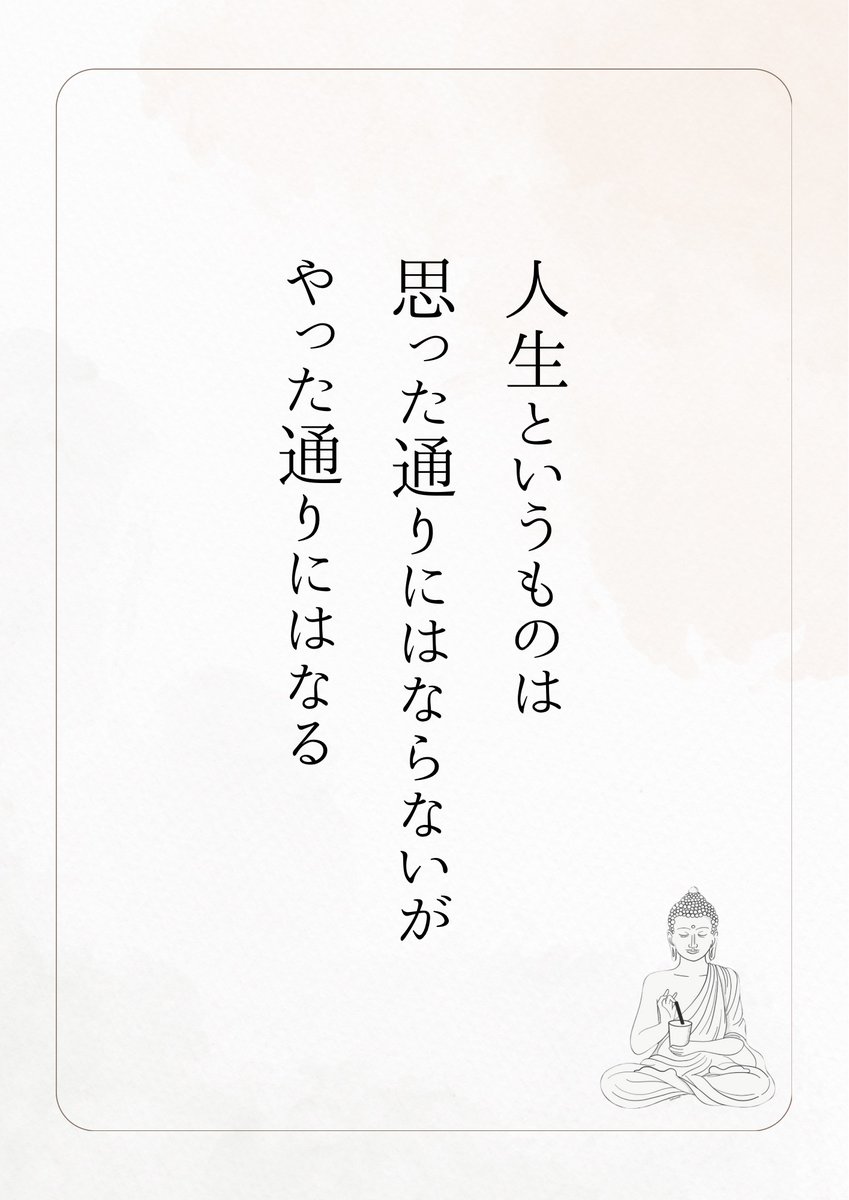 人生というものは
思った通りにはならないが
やった通りにはなる